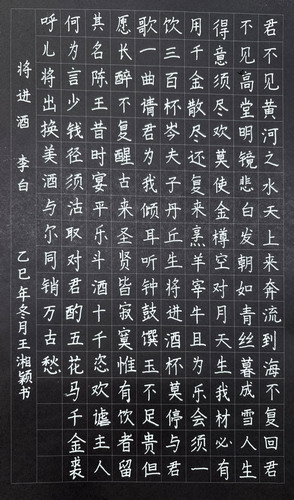 君不见黄河之水天上来奔流到海不复回君
不见高堂明镜悲白发朝如青丝暮成雪人生
得意须尽欢莫使金樽空对月天生我材必有
用千金散尽还复来烹羊宰牛且为乐会须一
饮三百杯岑夫子丹丘生将进酒杯莫停与君
歌一曲请君为我倾耳听钟鼓馔玉不足贵但
愿长醉不复醒古来圣贤皆寂寞惟有饮者留
其名陈王昔时宴平乐斗酒十千恣欢谑主人
何为言少钱径须沽取对君酌五花马千金裘
呼儿将出换美酒与尔同销万古愁
将进酒 李白 乙巳年冬月王湘颖书